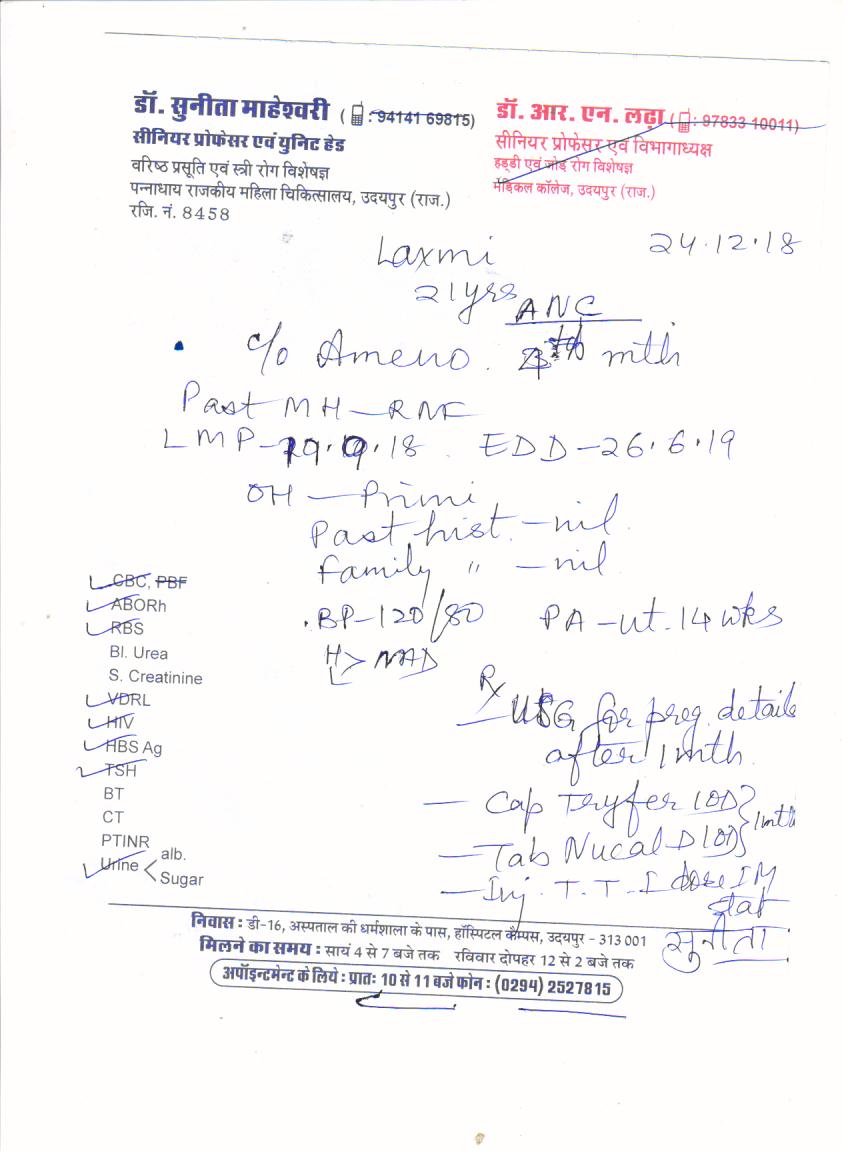 डॉ. सुनीता माहेश्वरी ( : 94141 69815)
सीनियर प्रोफेसर एवं युनिट हेड
वरिष्ठ प्रसूति एवं स्त्री रोग विशेषज्ञ
पन्नाधाय राजकीय महिला चिकित्सालय, उदयपुर (राज.)
रजि. नं. 8458
डॉ. आर. एन. लढ़ा ( : 97833 10011)
सीनियर प्रोफेसर एवं विभागाध्यक्ष
हड्डी एवं जोड़ रोग विशेषज्ञ
मेडिकल कॉलेज, उदयपुर (राज.)
Laxmi
24.12.18
21 yrs
ANC
c/o Ameno. mth
Past MH - RNF
LMP - 19.9.18 EDD - 26.6.19
OH - Primi
Past hist. - nil
Family " - nil
BP - 120/80 PA - ut. 14 wks
H
L > NAD
CBC, PBF
ABORh
RBS
Bl. Urea
S. Creatinine
VDRL
HIV
HBS Ag
TSH
BT
CT
PTINR
Urine < alb.
Sugar
Rx
- USG for preg. details
after 1 mth
- Cap Tryfer 1 OD
- Tab Nucal D 1 OD } 1 mth
- Inj. T.T. - I dose IM
stat
सुनीता
निवास : डी-16, अस्पताल की धर्मशाला के पास, हॉस्पिटल कैम्पस, उदयपुर - 313 001
मिलने का समय : सायं 4 से 7 बजे तक रविवार दोपहर 12 से 2 बजे तक
अपॉइन्टमेन्ट के लिये : प्रातः 10 से 11 बजे फोन : (0294) 2527815